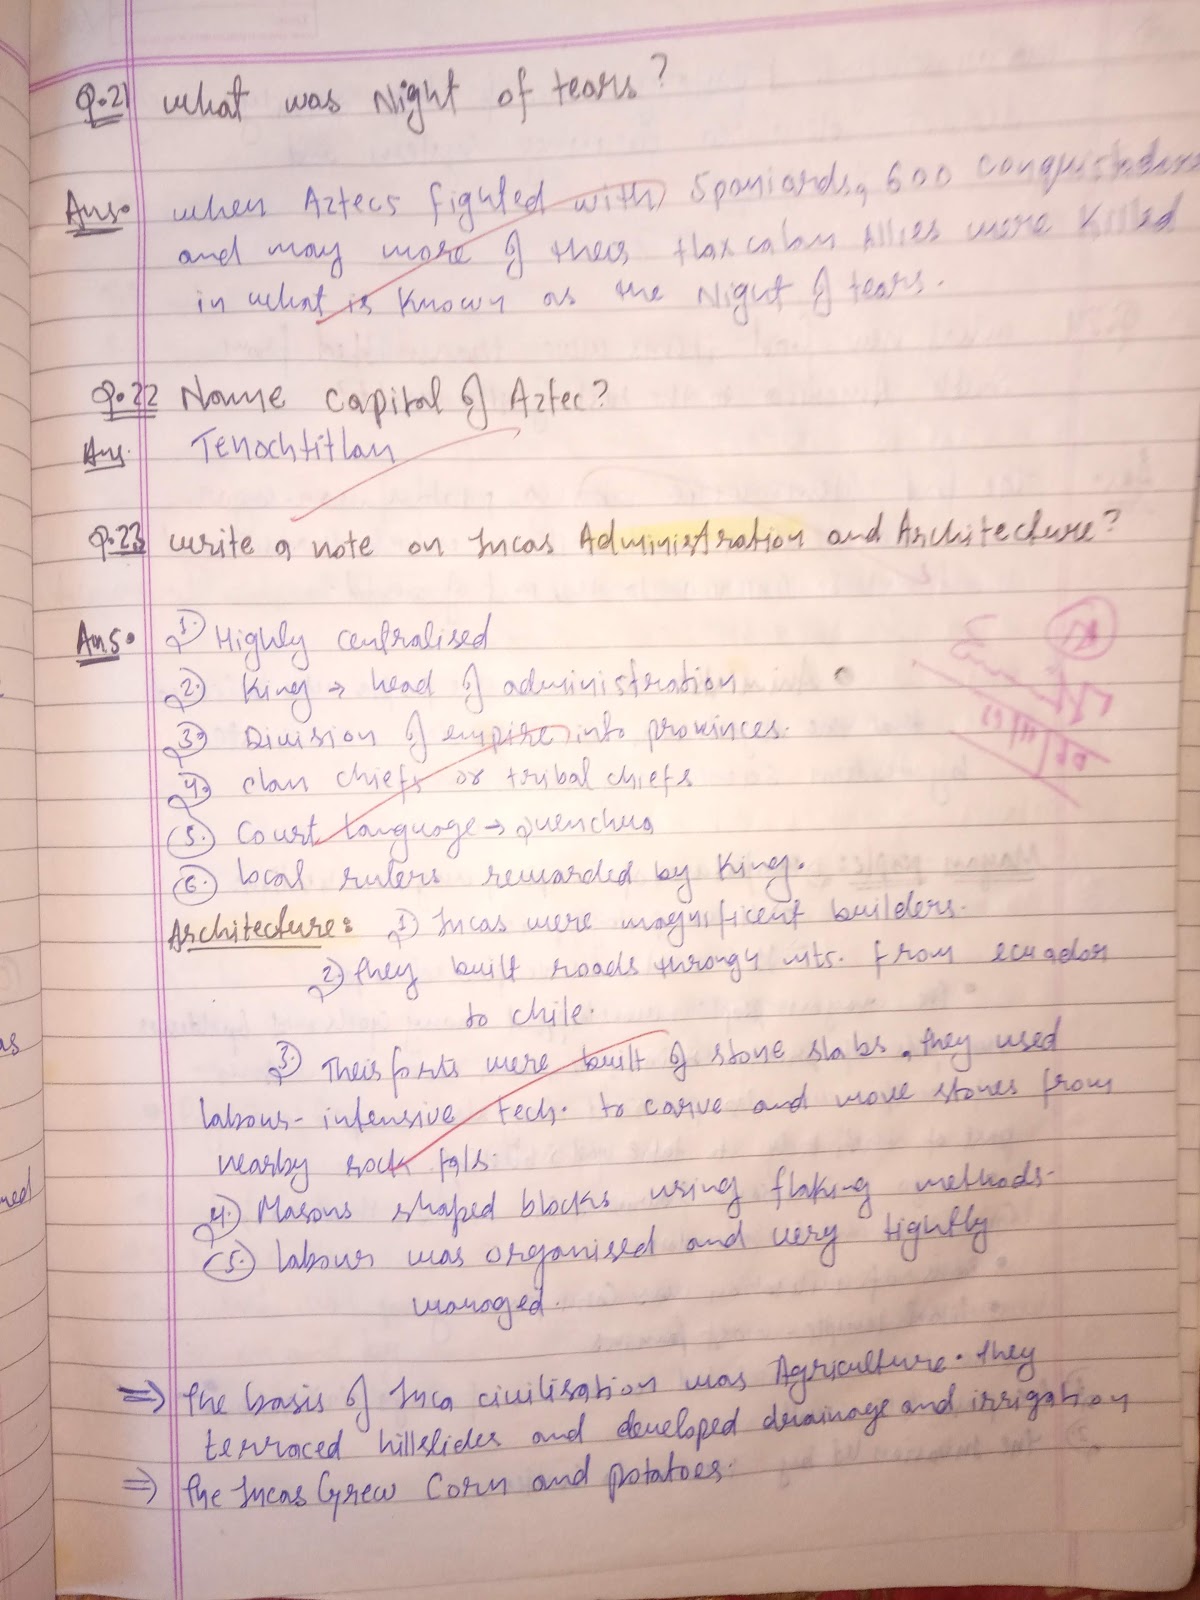 Q.21 What was Night of tears?
Ans. when Aztecs fighted with Spaniards, 600 conquistadors
and may more of their tlaxcalan Allies were Killed
in what is Known as the Night of tears.
Q.22 Name Capital of Aztec?
Ans. Tenochtitlan
Q.23 write a note on Incas Administration and Architecture?
Ans. 1. Highly centralised
2. King → head of administration
3. Division of empire into provinces.
4. clan chiefs or tribal chiefs
5. Court language → quenchua
6. local rulers rewarded by King.
Architecture: 1) Incas were magnificent builders.
2) they built roads through mts. from ecuador
to chile.
3. Their forts were built of stone slabs, they used
labour-intensive tech. to carve and move stones from
nearby rock falls.
4. Masons shaped blocks using flaking methods.
5. labour was organised and very tightly
managed.
⇒ the basis of Inca civilisation was Agriculture. they
terraced hillslides and developed drainage and irrigation
⇒ the Incas Grew Corn and potatoes.
as
ned